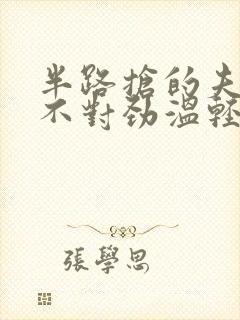 半路搶的夫
不對勁溫輕
張學思